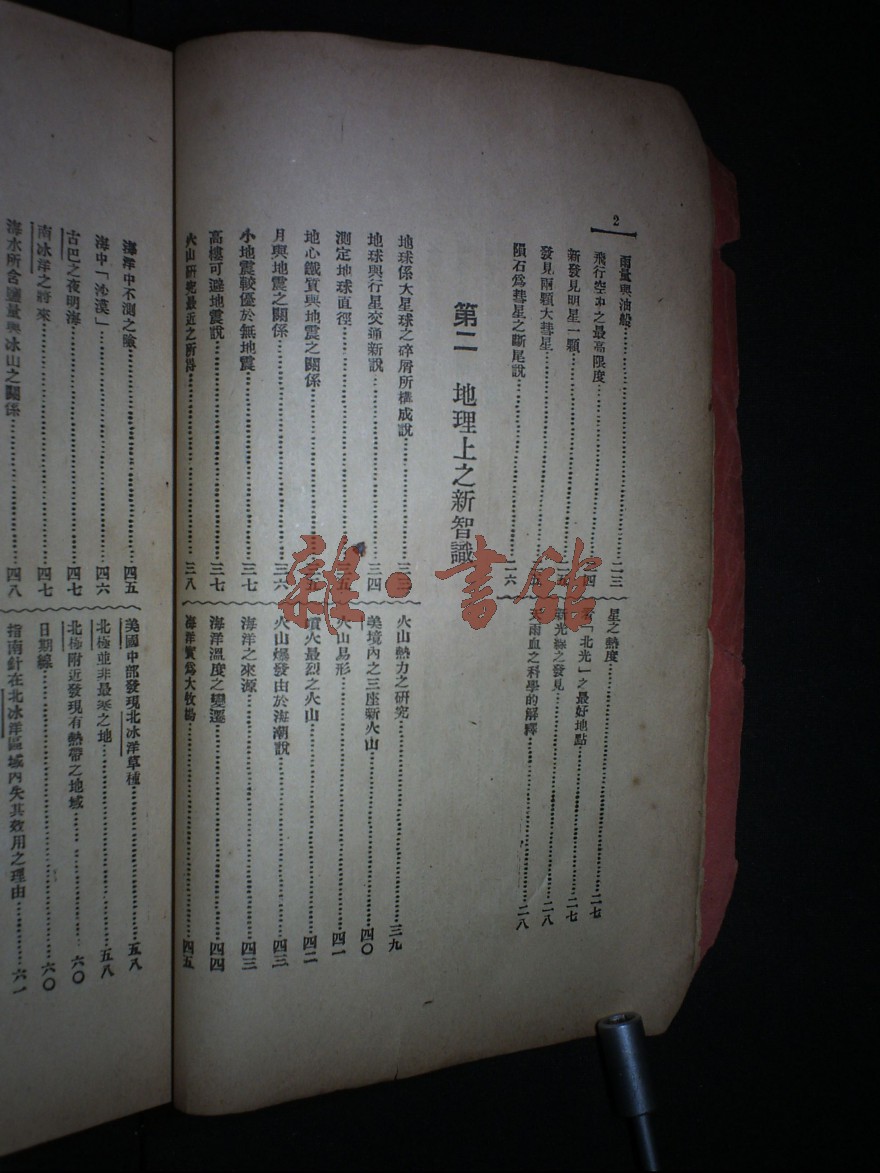 2
雨量與油船……二三
飛行空中之最高限度……二四
新發見明星一顆……二五
發見兩顆大彗星……二五
隕石爲彗星之斷尾說……二六
星之熱度……二七
「北光」之最好地點……二七
新光線之發見……二八
天雨血之科學的解釋……二八
第二 地理上之新智識
地球係大星球之碎屑所構成說……三三
地球與行星交通新說……三四
測定地球直徑……三五
地心鐵質與地震之關係……三五
月與地震之關係……三六
小地震較優於無地震……三七
高樓可避地震說……三七
火山研究最近之所得……三八
火山熱力之研究……三九
美境內之三座新火山……四〇
火山易形……四一
噴火最烈之火山……四二
火山爆發由於海潮說……四三
海洋之來源……四三
海洋溫度之變遷……四四
海洋實爲大牧場……四五
海洋中不測之險……四五
海中「沁漠」……四六
古巴之夜明海……四七
南冰洋之將來……四七
海水所含鹽量與冰山之關係……四八
美國中部發現北冰洋草種……五八
北極並非最寒之地……五八
北極附近發現有熱帶之地域……六〇
日期線……六〇
指南針在北冰洋區域內失其效用之理由……六一
雜·書館